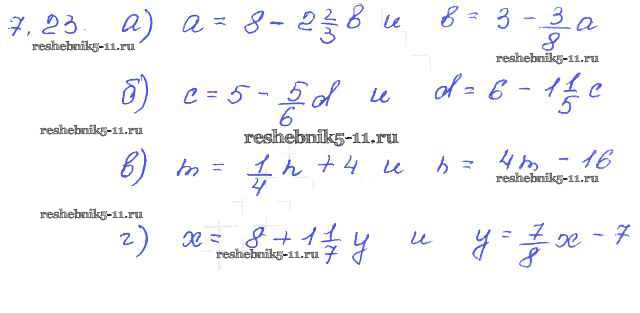 7.23. а) a = 8 - 2 2/3 b и b = 3 - 3/8 a
reshebnik5-11.ru
reshebnik5-11.ru
б) c = 5 - 5/6 d и d = 6 - 1 1/5 c
reshebnik5-11.ru
reshebnik5-11.ru
в) m = 1/4 n + 4 и n = 4m - 16
reshebnik5-11.ru
reshebnik5-11.ru
г) x = 8 + 1 1/7 y и y = 7/8 x - 7
reshebnik5-11.ru